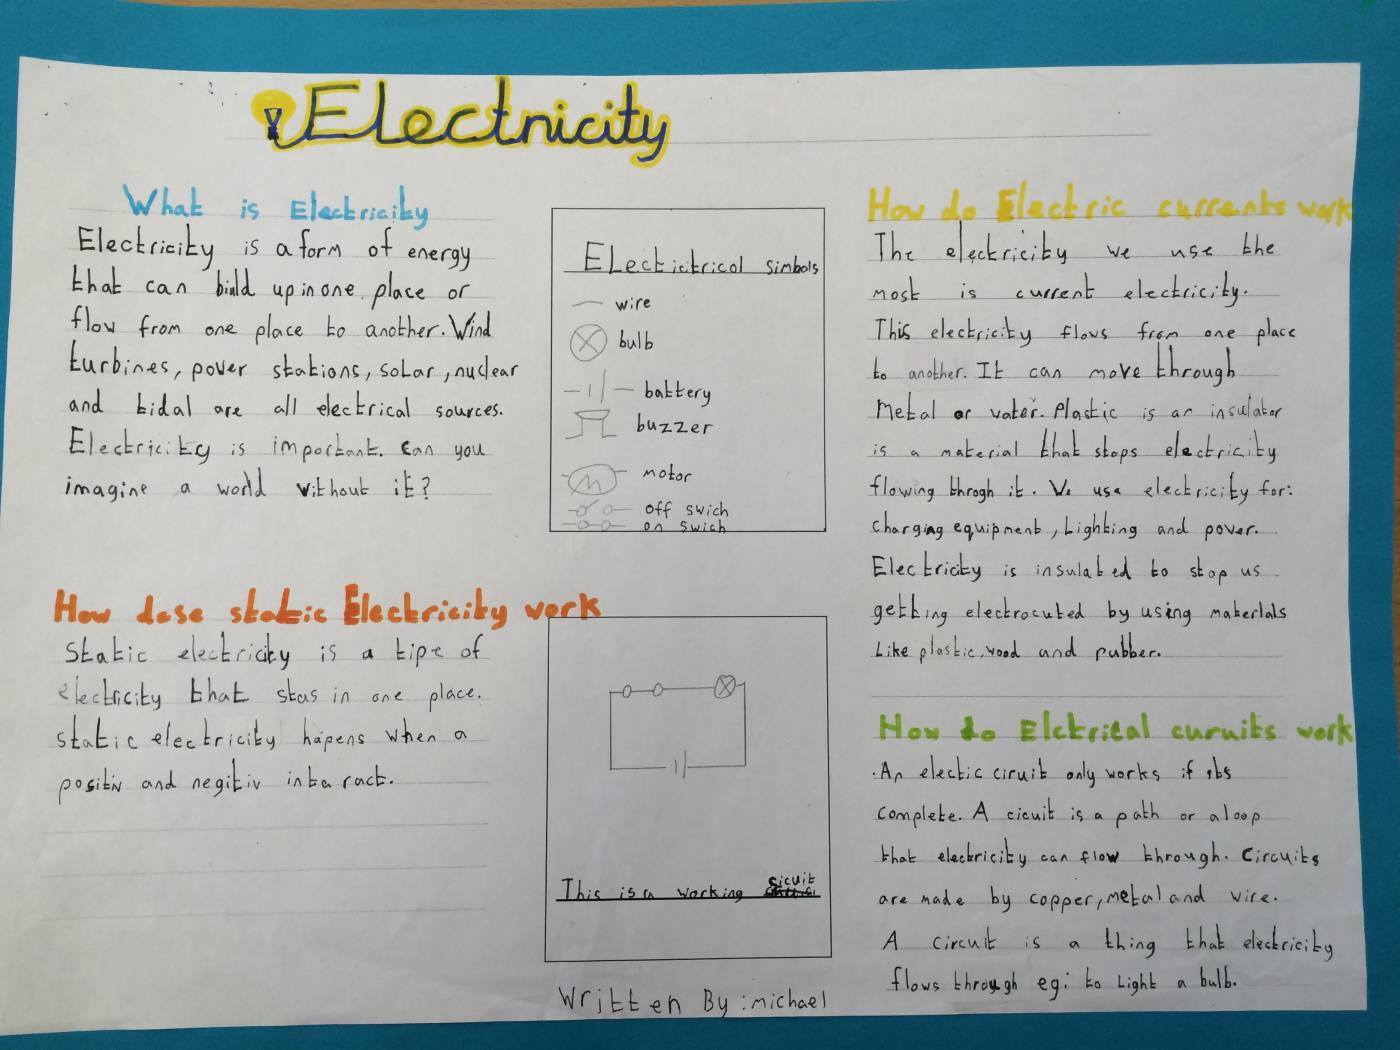 Electricity
What is Electricity
Electricity is a form of energy
that can build up in one place or
flow from one place to another. Wind
turbines, power stations, solar, nuclear
and tidal are all electrical sources.
Electricity is important. Can you
imagine a world without it?
How dose static Electricity work
Static electricity is a tipe of
electricity that stas in one place.
static electricity hapens when a
positiv and negitiv intaract.
Electictrical simbols
wire
bulb
battery
buzzer
M
motor
off swich
on swich
This is a working sicuit
Written By: michael
How do Electric currents work
The electricity we use the
most is current electricity.
This electricity flows from one place
to another. It can move through
Metal or water. Plastic is an insulator
is a material that stops electricity
flowing throgh it. We use electricity for:
charging equipment, Lighting and power.
Electricity is insulated to stop us
getting electrocuted by using materials
Like plastic, wood and rubber.
How do Elctrical curuits work
.An electic ciruit only works if its
complete. A cicuit is a path or a loop
that electricity can flow through. Circuits
are made by copper, metal and wire.
A circuit is a thing that electricity
flows through eg: to Light a bulb.